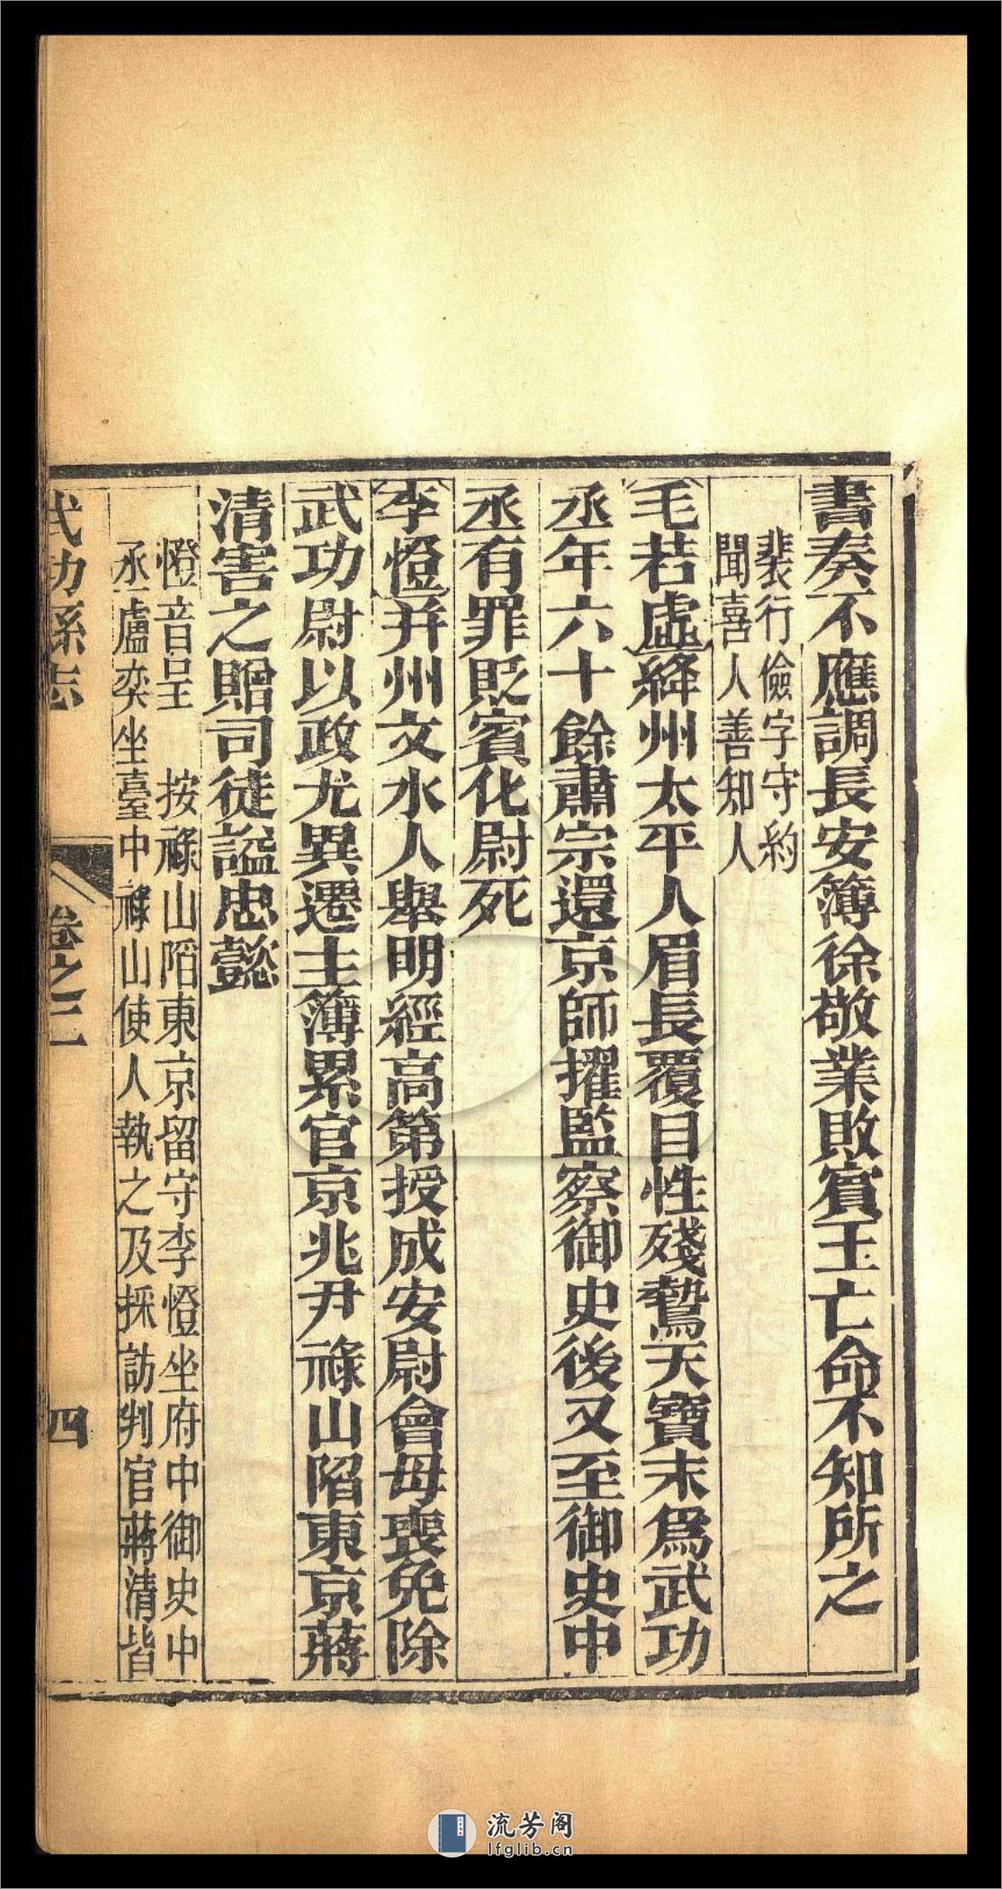 書奏不應調長安簿徐敬業敗賓王亡命不知所之
裴行儉字守約
聞喜人善知人
毛若虛絳州太平人眉長覆目性殘鷙天寶末爲武功
丞年六十餘肅宗還京師擢監察御史後又至御史中
丞有罪貶賓化尉死
李憕并州文水人舉明經高第授成安尉會母喪免除
武功尉以政尤異遷主簿累官京兆尹祿山陷東京蔣
清害之贈司徒謚忠懿
憕音呈　按祿山陷東京留守李憕坐府中御史中
丞盧奕坐臺中祿山使人執之及採訪判官蔣清皆
武功縣志　卷之三　四
流芳阁
lfglib.cn